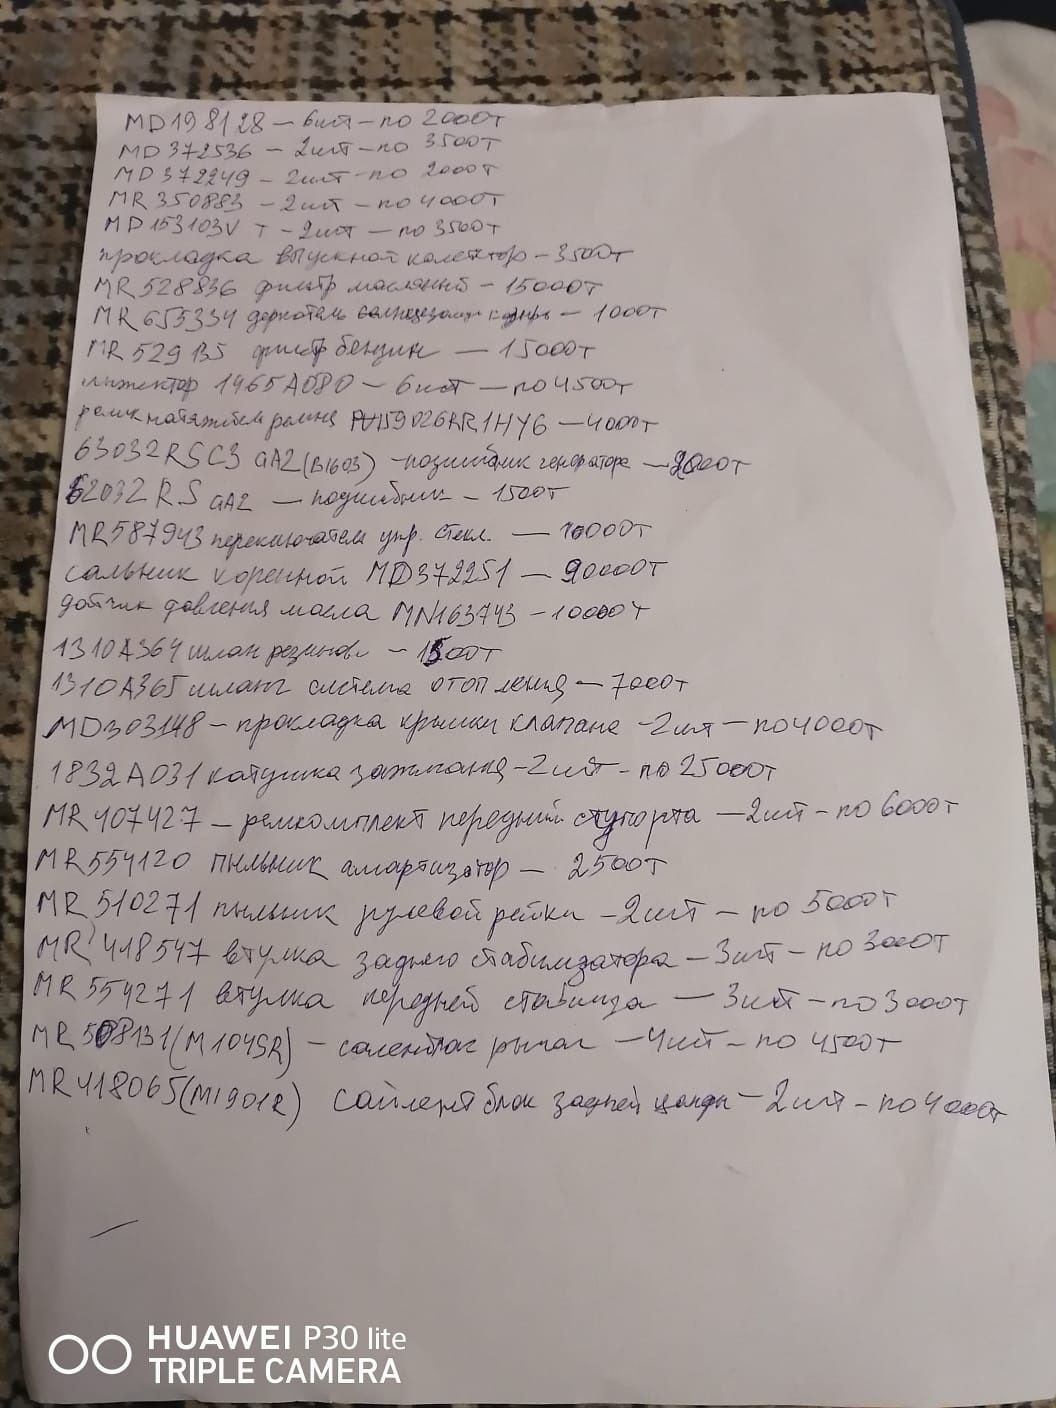 MD198128 – 6шт – по 2000т
MD372536 – 2шт – по 3500т
MD372249 – 2шт – по 2000т
MR350883 – 2шт – по 4000т
MD153103V т – 2шт – по 3500т
прокладка выпускной колектор – 3500т
MR528836 фильтр масляный – 15000т
MR655334 держатель – 1000т
MR529135 фильтр бензин – 15000т
инжектор 1465A080 – 6шт – по 4500т
ремня – 4000т
63032RSC3 GA2 (B1603) – генератора – 2000т
62032RS GA2 – подшибник – 1500т
MR587943 переключатель упр. стекл. – 10000т
сальник коренной MD372251 – 20000т
датчик давления масла MN163743 – 10000т
1310A364 шлан резинов – 1500т
1310A365 шланг система отопления – 7000т
MD303148 – прокладка крышки клапана – 2шт – по 4000т
1832A031 катушка зажигания – 2шт – по 25000т
MR407427 – ремкомплект передний суппорта – 2шт – по 6000т
MR554120 пыльник амартизатор – 2500т
MR510271 пыльник рулевой рейки – 2шт – по 5000т
MR418547 втулка заднего стабилизатора – 3шт – по 3000т
MR554271 втулка передней – 3шт – по 3000т
MR508131 (M104SR) – рычаг – 4шт – по 4500т
MR418065 (M1901R) сайлент блок задней цапфы – 2шт – по 4000т
HUAWEI P30 lite
TRIPLE CAMERA